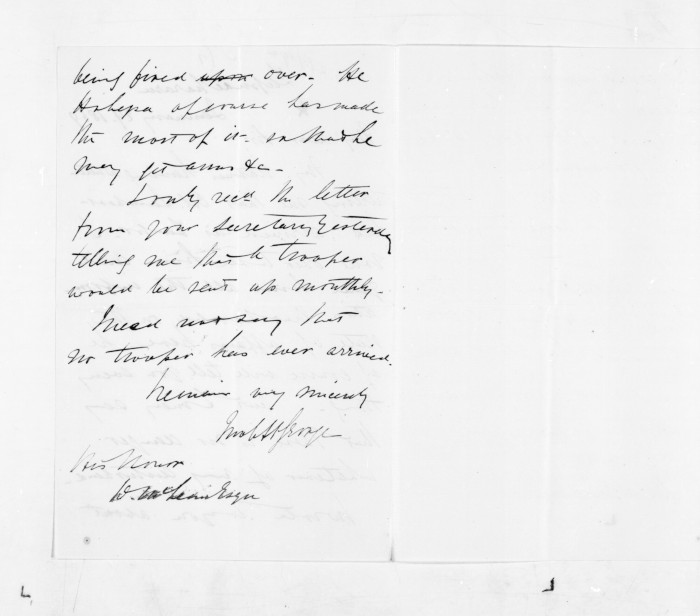 being fired upon over. He
Hakepa of course has made
the most of it - so that he
may get arms &c -
I only recd. the letter
from your Secretary yesterday
telling me that a trooper
would be sent up monthly.
I need not say that
no trooper has ever arrived.
I remain very sincerely
St George
His Honor
D. McLean Esqre